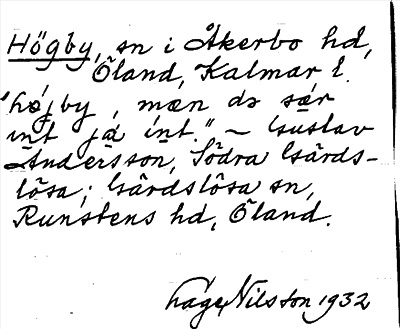 Högby, sn i Åkerbo hd,
Öland, Kalmar l.
"højby, mæn də sɑ́r
int ja int." ~ Gustav
Andersson, Södra Gärds-
lösa; Gärdslösa sn,
Runstens hd, Öland.
Nilsson 1932